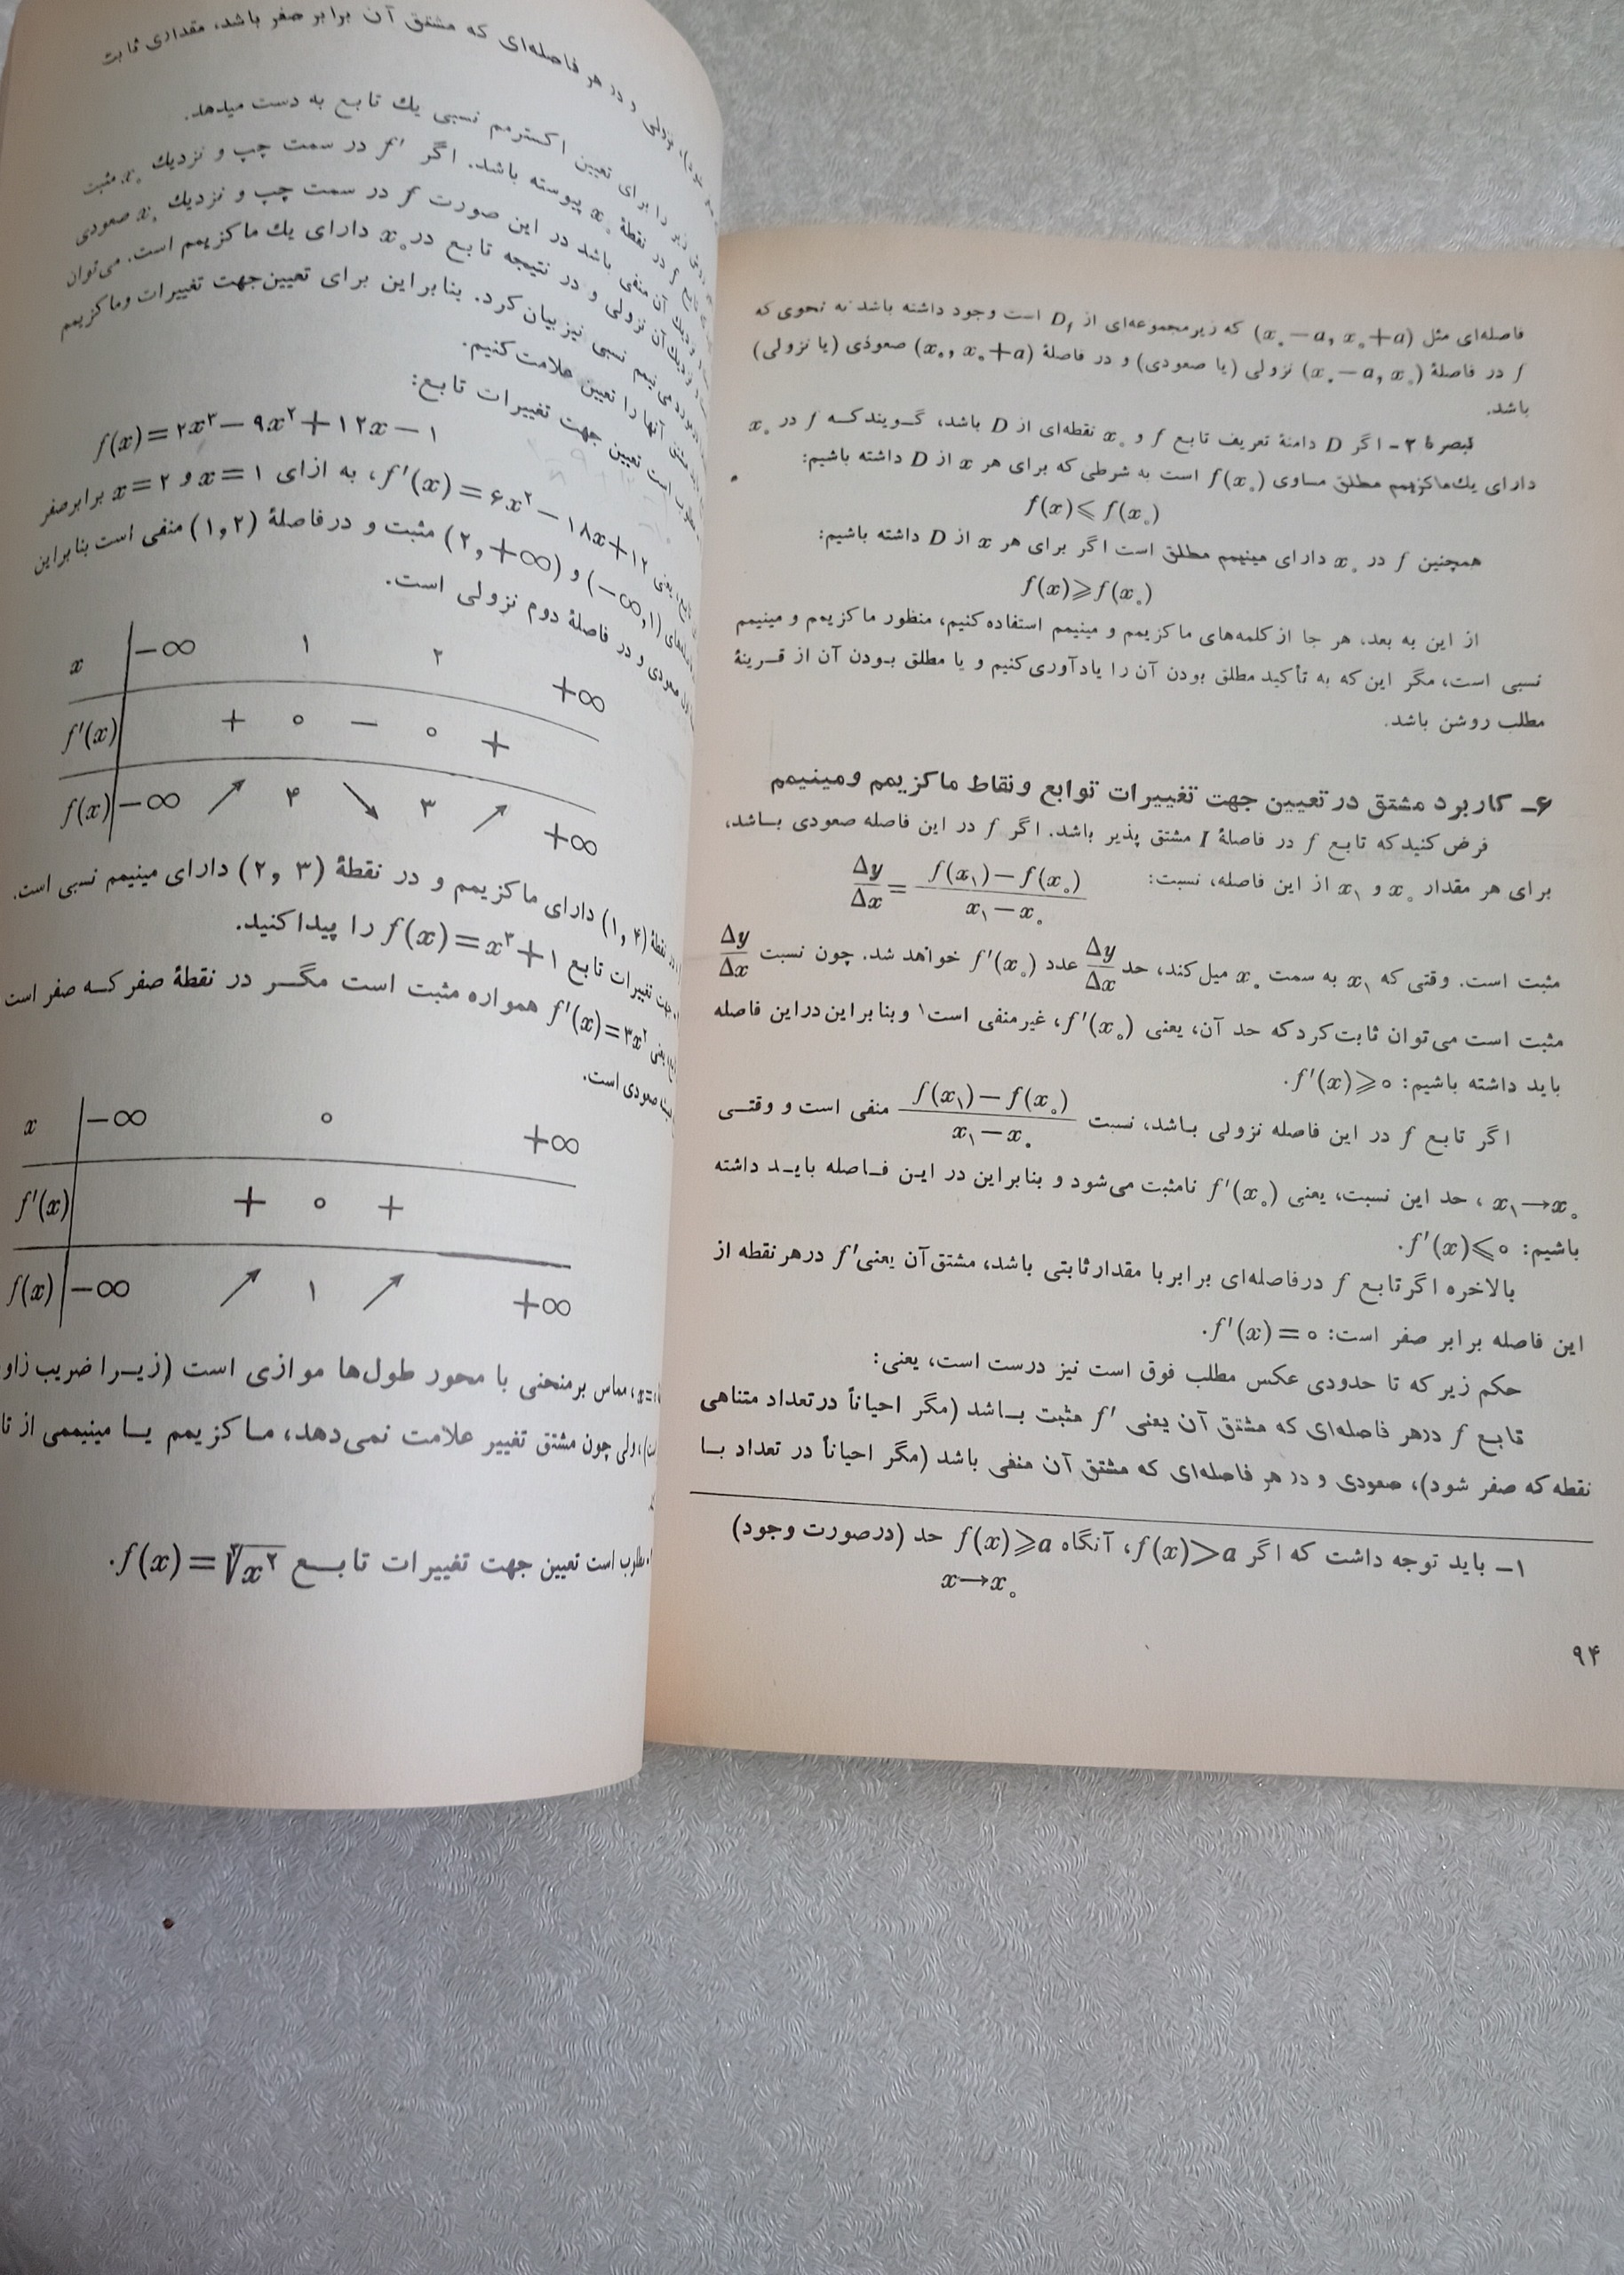 فاصله‌ای مثل (x₀−a, x₀+a) که زیرمجموعه‌ای از D_f است وجود داشته باشد به نحوی که
f در فاصلهٔ (x₀−a, x₀) نزولی (یا صعودی) و در فاصلهٔ (x₀, x₀+a) صعودی (یا نزولی)
باشد.
تبصرهٔ ۲- اگر D دامنهٔ تعریف تابع f و x₀ نقطه‌ای از D باشد، گویند که f در x₀
دارای یك ماکزیمم مطلق مساوی f(x₀) است به شرطی که برای هر x از D داشته باشیم:
f(x)⩽f(x₀)
همچنین f در x₀ دارای مینیمم مطلق است اگر برای هر x از D داشته باشیم:
f(x)⩾f(x₀)
از این به بعد، هر جا از کلمه‌های ماکزیمم و مینیمم استفاده کنیم، منظور ماکزیمم و مینیمم
نسبی است، مگر این که به تأکید مطلق بودن آن را یادآوری کنیم و یا مطلق بودن آن از قرینهٔ
مطلب روشن باشد.
۶- کاربرد مشتق در تعیین جهت تغییرات توابع و نقاط ماکزیمم و مینیمم
فرض کنید که تابع f در فاصلهٔ I مشتق پذیر باشد. اگر f در این فاصله صعودی باشد،
برای هر مقدار x₀ و x₁ از این فاصله، نسبت: Δy/Δx = (f(x₁)−f(x₀))/(x₁−x₀)
مثبت است. وقتی که x₁ به سمت x₀ میل کند، حد Δy/Δx عدد f′(x₀) خواهد شد. چون نسبت Δy/Δx
مثبت است می‌توان ثابت کرد که حد آن، یعنی f′(x₀)، غیرمنفی است¹ و بنابراین در این فاصله
باید داشته باشیم: f′(x)⩾۰.
اگر تابع f در این فاصله نزولی باشد، نسبت (f(x₁)−f(x₀))/(x₁−x₀) منفی است و وقتی
x₁→x₀، حد این نسبت، یعنی f′(x₀) نامثبت می‌شود و بنابراین در این فاصله باید داشته
باشیم: f′(x)⩽۰.
بالاخره اگر تابع f در فاصله‌ای برابر با مقدار ثابتی باشد، مشتق آن یعنی f′ در هر نقطه از
این فاصله برابر صفر است: f′(x)=۰.
حکم زیر که تا حدودی عکس مطلب فوق است نیز درست است، یعنی:
تابع f در هر فاصله‌ای که مشتق آن یعنی f′ مثبت باشد (مگر احیاناً در تعداد متناهی
نقطه که صفر شود)، صعودی و در هر فاصله‌ای که مشتق آن منفی باشد (مگر احیاناً در تعداد با
۱- باید توجه داشت که اگر f(x)>a، آنگاه f(x)⩾a حد (در صورت وجود)
x→x₀
۹۴
نزولی و در هر فاصله‌ای که مشتق آن برابر صفر باشد، مقداری ثابت
را برای تعیین اکسترمم نسبی یك تابع به دست میدهد.
f در نقطهٔ x₀ پیوسته باشد. اگر f′ در سمت چپ و نزدیك x₀ مثبت
آن منفی باشد در این صورت f در سمت چپ و نزدیك x₀ صعودی
آن نزولی و در نتیجه تابع در x₀ دارای یك ماکزیمم است. می‌توان
مینیمم نسبی نیز بیان کرد. بنابراین برای تعیین جهت تغییرات و ماکزیمم
آنها را تعیین علامت کنیم.
است تعیین جهت تغییرات تابع:
f(x)=۲x³−۹x²+۱۲x−۱
یعنی f′(x)=۶x²−۱۸x+۱۲، به ازای x=۱ و x=۲ برابر صفر
(−∞,۱) و (۲,+∞) مثبت و در فاصلهٔ (۱,۲) منفی است بنابراین
صعودی و در فاصلهٔ دوم نزولی است.
x −∞ ۱ ۲ +∞
f′(x) + ۰ − ۰ +
f(x) −∞ ↗ ۴ ↘ ۳ ↗ +∞
نقطهٔ (۱,۴) دارای ماکزیمم و در نقطهٔ (۲,۳) دارای مینیمم نسبی است.
جهت تغییرات تابع f(x)=x³+۱ را پیدا کنید.
یعنی f′(x)=۳x² همواره مثبت است مگر در نقطهٔ صفر که صفر است
صعودی است.
x −∞ ۰ +∞
f′(x) + ۰ +
f(x) −∞ ↗ ۱ ↗ +∞
مماس بر منحنی با محور طول‌ها موازی است (زیرا ضریب
ولی چون مشتق تغییر علامت نمی‌دهد، ماکزیمم یا مینیممی از
مطلوب است تعیین جهت تغییرات تابع f(x)=∛x².